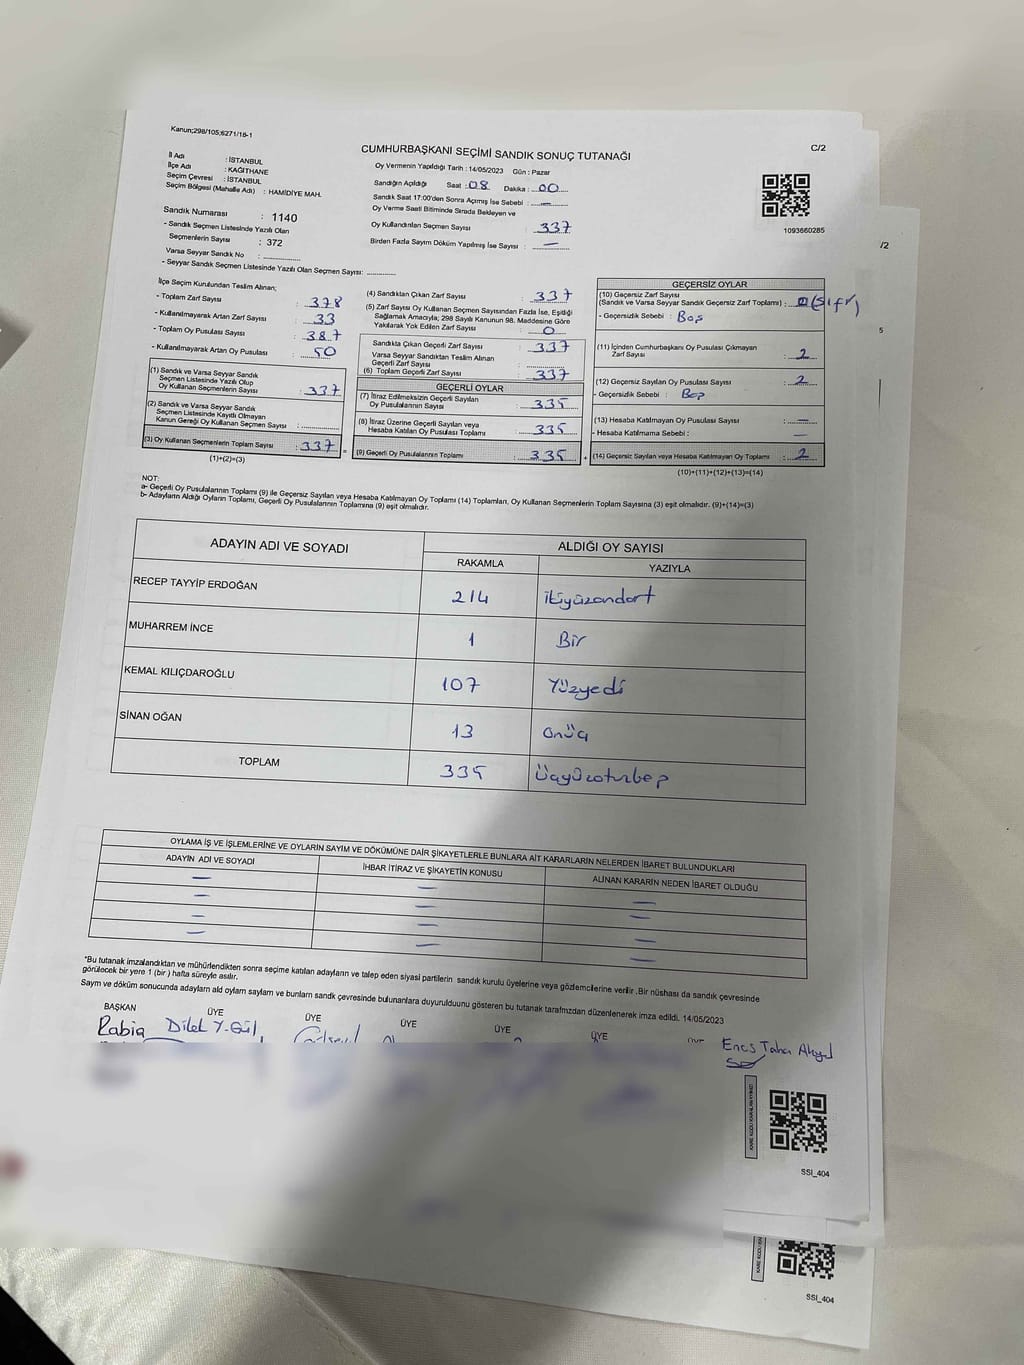 Kanun;298/105;6271/18-1
CUMHURBAŞKANI SEÇİMİ SANDIK SONUÇ TUTANAĞI
C/2
İl Adı : İSTANBUL
İlçe Adı : KAĞITHANE
Seçim Çevresi : İSTANBUL
Seçim Bölgesi (Mahalle Adı) : HAMİDİYE MAH.
Sandık Numarası : 1140
- Sandık Seçmen Listesinde Yazılı Olan
Seçmenlerin Sayısı : 372
Varsa Seyyar Sandık No : ..............
- Seyyar Sandık Seçmen Listesinde Yazılı Olan Seçmen Sayısı: ............
Oy Vermenin Yapıldığı Tarih : 14/05/2023 Gün : Pazar
Sandığın Açıldığı Saat : 08 Dakika : 00
Sandık Saat 17:00'den Sonra Açılmış İse Sebebi : —
Oy Verme Saati Bitiminde Sırada Bekleyen ve
Oy Kullandırılan Seçmen Sayısı : 337
Birden Fazla Sayım Döküm Yapılmış İse Sayısı : —
1093660285
/2
İlçe Seçim Kurulundan Teslim Alınan;
- Toplam Zarf Sayısı : 378
- Kullanılmayarak Artan Zarf Sayısı : 33
- Toplam Oy Pusulası Sayısı : 387
- Kullanılmayarak Artan Oy Pusulası : 50
(1) Sandık ve Varsa Seyyar Sandık
Seçmen Listesinde Yazılı Olup
Oy Kullanan Seçmenlerin Sayısı : 337
(2) Sandık ve Varsa Seyyar Sandık
Seçmen Listesinde Kayıtlı Olmayan
Kanun Gereği Oy Kullanan Seçmen Sayısı : ..............
(3) Oy Kullanan Seçmenlerin Toplam Sayısı : 337
(1)+(2)=(3)
(4) Sandıktan Çıkan Zarf Sayısı : 337
(5) Zarf Sayısı Oy Kullanan Seçmen Sayısından Fazla İse, Eşitliği
Sağlamak Amacıyla; 298 Sayılı Kanunun 98. Maddesine Göre
Yakılarak Yok Edilen Zarf Sayısı : 0
Sandıkta Çıkan Geçerli Zarf Sayısı : 337
Varsa Seyyar Sandıktan Teslim Alınan
Geçerli Zarf Sayısı : ..............
(6) Toplam Geçerli Zarf Sayısı : 337
GEÇERLİ OYLAR
(7) İtiraz Edilmeksizin Geçerli Sayılan
Oy Pusulalarının Sayısı : 335
(8) İtiraz Üzerine Geçerli Sayılan veya
Hesaba Katılan Oy Pusulası Toplamı : 335
= (9) Geçerli Oy Pusulalarının Toplamı : 335 +
GEÇERSİZ OYLAR
(10) Geçersiz Zarf Sayısı
(Sandık ve Varsa Seyyar Sandık Geçersiz Zarf Toplamı) : 0 (sıfır)
- Geçersizlik Sebebi : Boş
(11) İçinden Cumhurbaşkanı Oy Pusulası Çıkmayan
Zarf Sayısı : 2
(12) Geçersiz Sayılan Oy Pusulası Sayısı : 2
- Geçersizlik Sebebi : Boş
(13) Hesaba Katılmayan Oy Pusulası Sayısı : —
- Hesaba Katılmama Sebebi : —
(14) Geçersiz Sayılan veya Hesaba Katılmayan Oy Toplamı : 2
(10)+(11)+(12)+(13)=(14)
5
NOT:
a- Geçerli Oy Pusulalarının Toplamı (9) ile Geçersiz Sayılan veya Hesaba Katılmayan Oy Toplamı (14) Toplamları, Oy Kullanan Seçmenlerin Toplam Sayısına (3) eşit olmalıdır. (9)+(14)=(3)
b- Adayların Aldığı Oyların Toplamı, Geçerli Oy Pusulalarının Toplamına (9) eşit olmalıdır.
ADAYIN ADI VE SOYADI ALDIĞI OY SAYISI
RAKAMLA YAZIYLA
RECEP TAYYİP ERDOĞAN 214 ikiyüzondört
MUHARREM İNCE 1 Bir
KEMAL KILIÇDAROĞLU 107 Yüzyedi
SİNAN OĞAN 13 onüç
TOPLAM 335 Üçyüzotuzbeş
OYLAMA İŞ VE İŞLEMLERİNE VE OYLARIN SAYIM VE DÖKÜMÜNE DAİR ŞİKAYETLERLE BUNLARA AİT KARARLARIN NELERDEN İBARET BULUNDUKLARI
ADAYIN ADI VE SOYADI İHBAR İTİRAZ VE ŞİKAYETİN KONUSU ALINAN KARARIN NEDEN İBARET OLDUĞU
— — —
— — —
— — —
— — —
*Bu tutanak imzalandıktan ve mühürlendikten sonra seçime katılan adayların ve talep eden siyasi partilerin sandık kurulu üyelerine veya gözlemcilerine verilir .Bir nüshası da sandık çevresinde
görülecek bir yere 1 (bir ) hafta süreyle asılır.
Sayım ve döküm sonucunda adayların ald oyların saylam ve bunların sandk çevresinde bulunanlara duyurulduunu gösteren bu tutanak tarafmzdan düzenlenerek imza edildi. 14/05/2023
BAŞKAN ÜYE ÜYE ÜYE ÜYE ÜYE
Rabia Dilek Y. Gül Enes Taha
KARE KODU KARALAMAYINIZ!
SSI_404
SSI_404